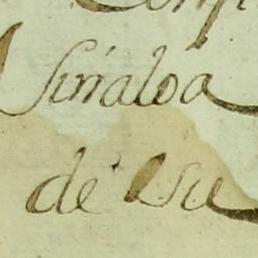 Sinaloa
de su